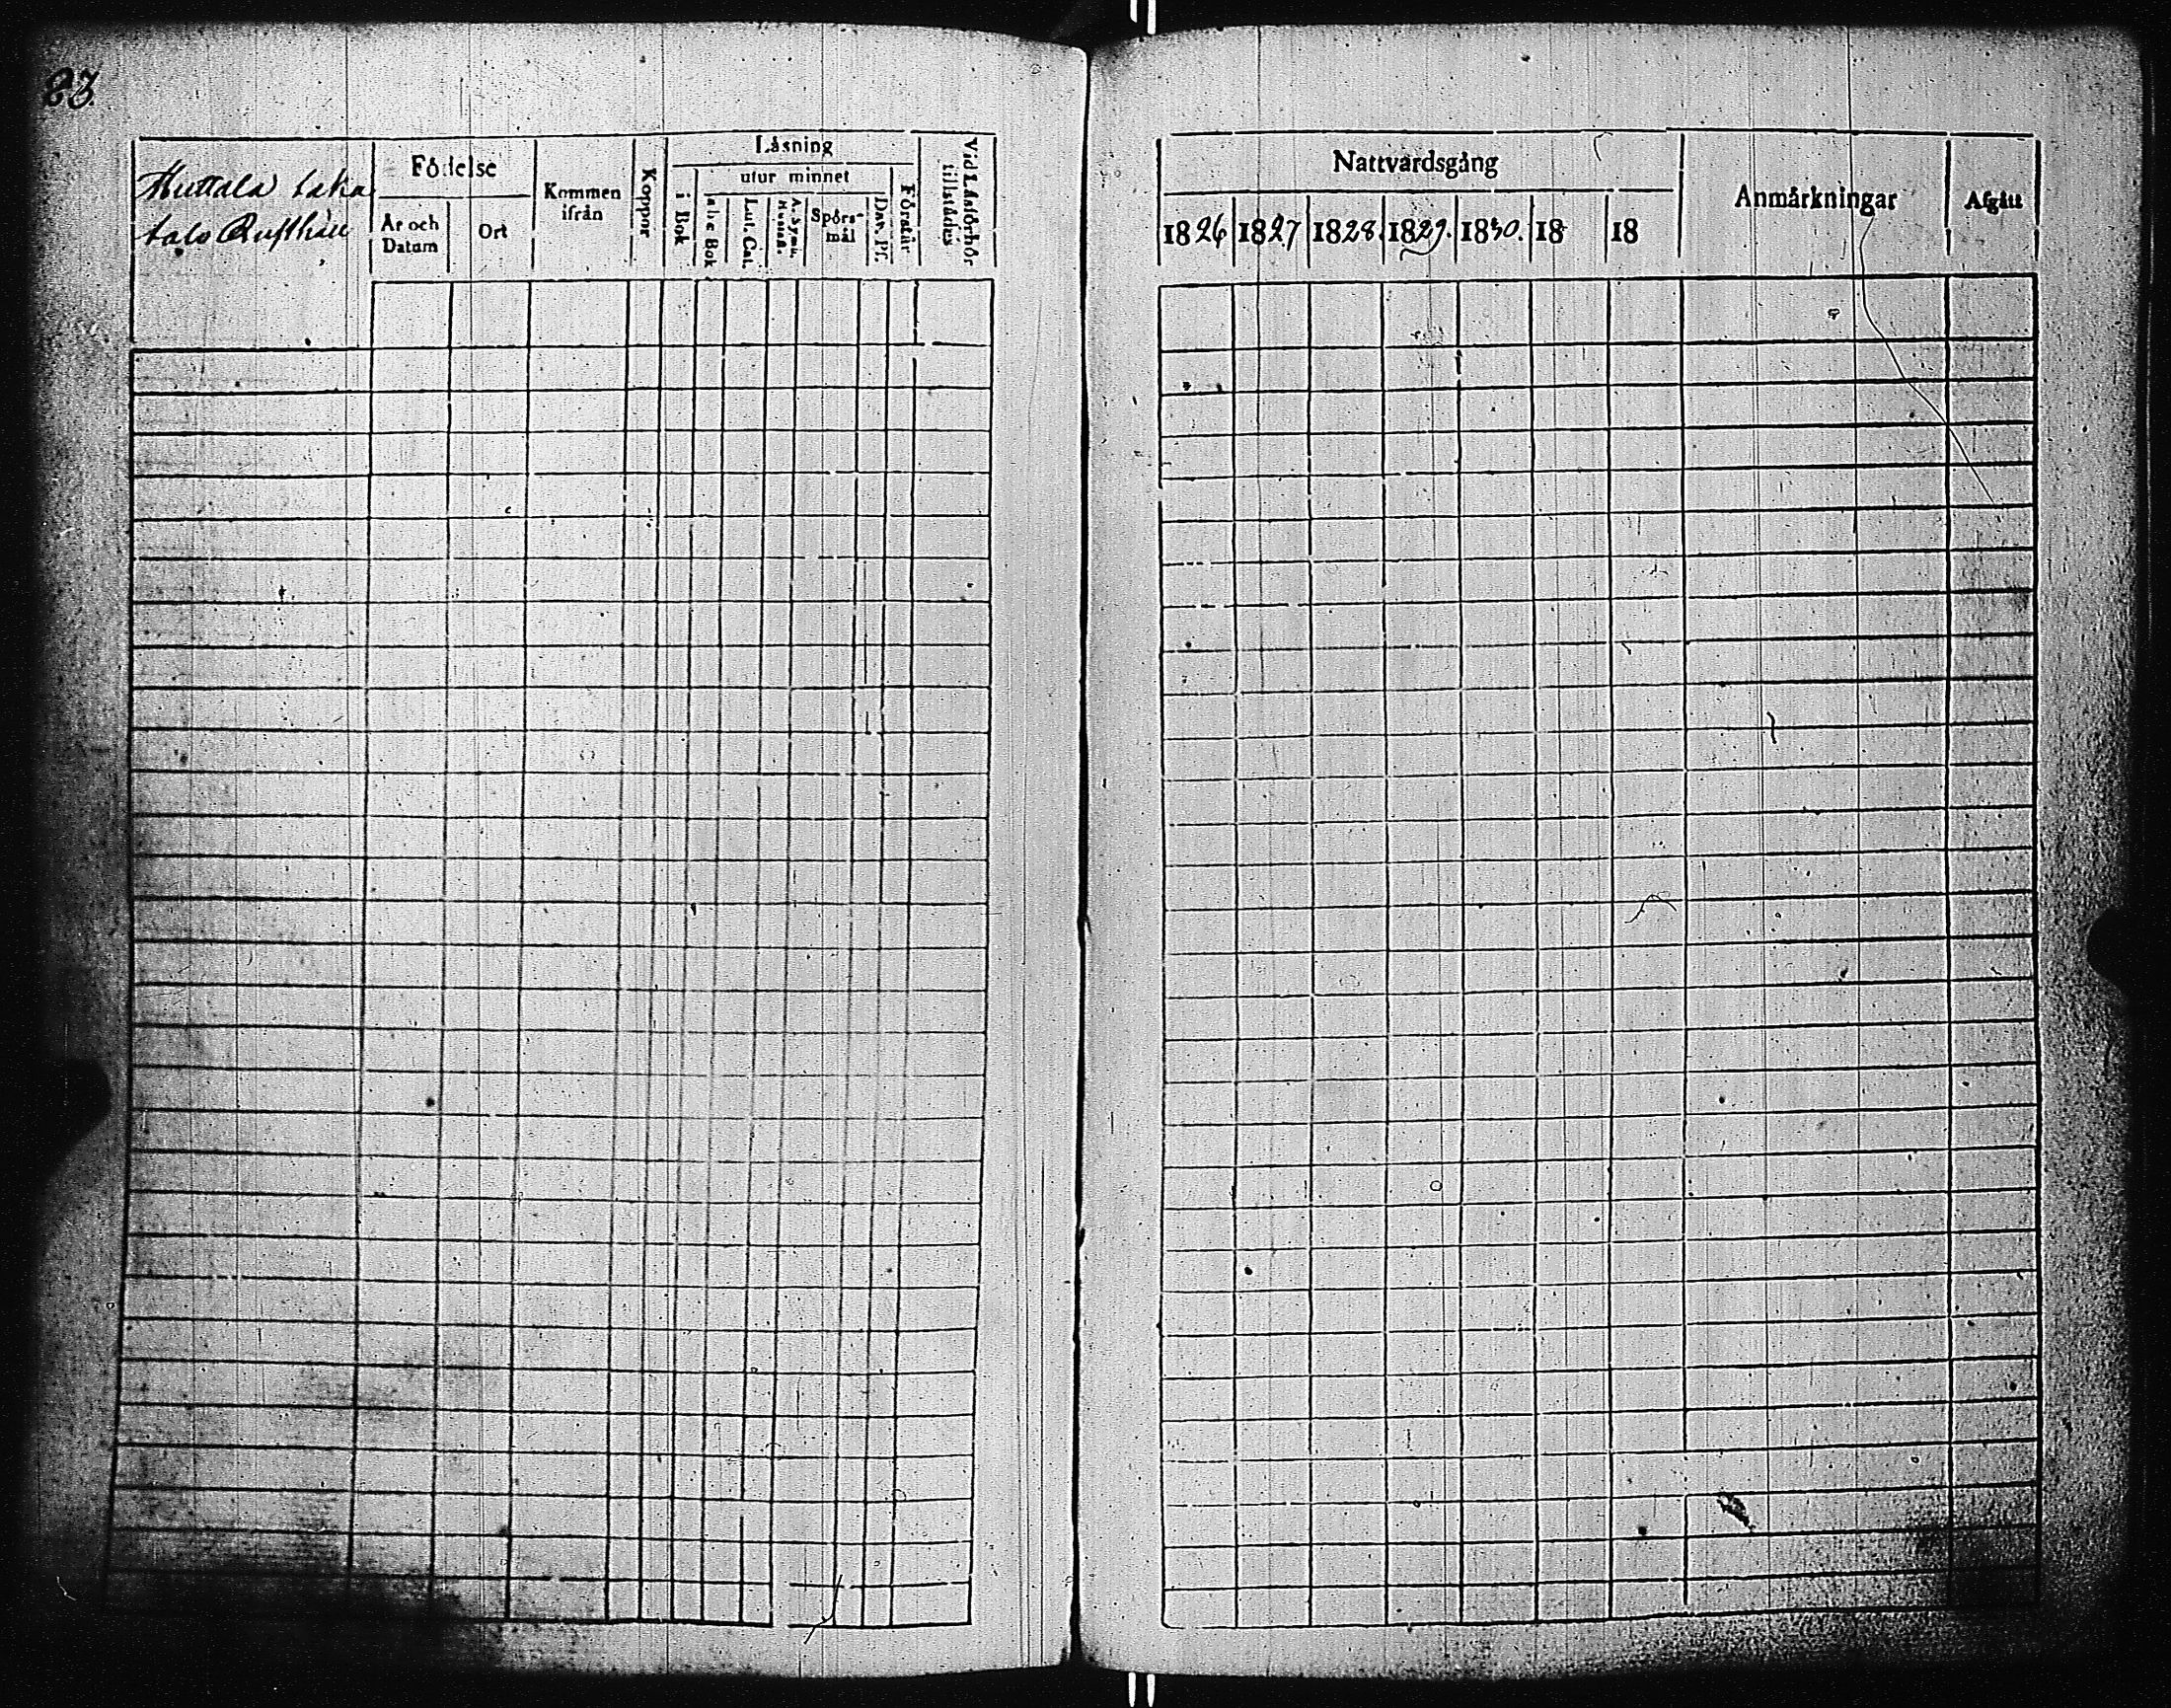 83.
Huttala Laka
talo Rusthåll
Födelse
År och Datum
Ort
Kommen ifrån
Koppor
Låsning
i Bok
utur minnet
Abc Bok
Lut. Cat.
A. Symb. Hustafl.
Spörs-mål
Dav. Ps.
Förstår
Vid Låsförhör tillstädes
Nattvardsgång
1826
1827
1828.
1829.
1830.
18
18
Anmärkningar
Afgått